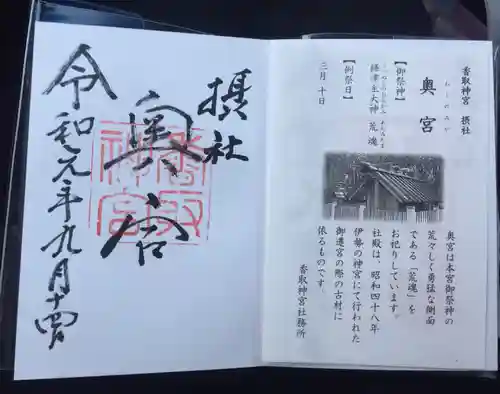 摂社
奥宮
令和元年九月十四日
香取神宮
香取神宮 摂社
奥宮
おくのみや
【御祭神】
経津主大神 荒魂
ふつぬしのおおかみ あらみたま
【例祭日】
三月 十日
奥宮は本宮御祭神の
荒々しく勇猛な側面
である「荒魂」を
お祀りしています。
社殿は、昭和四十八年
伊勢の神宮にて行われた
御遷宮の際の古材に
依るものです。
香取神宮社務所